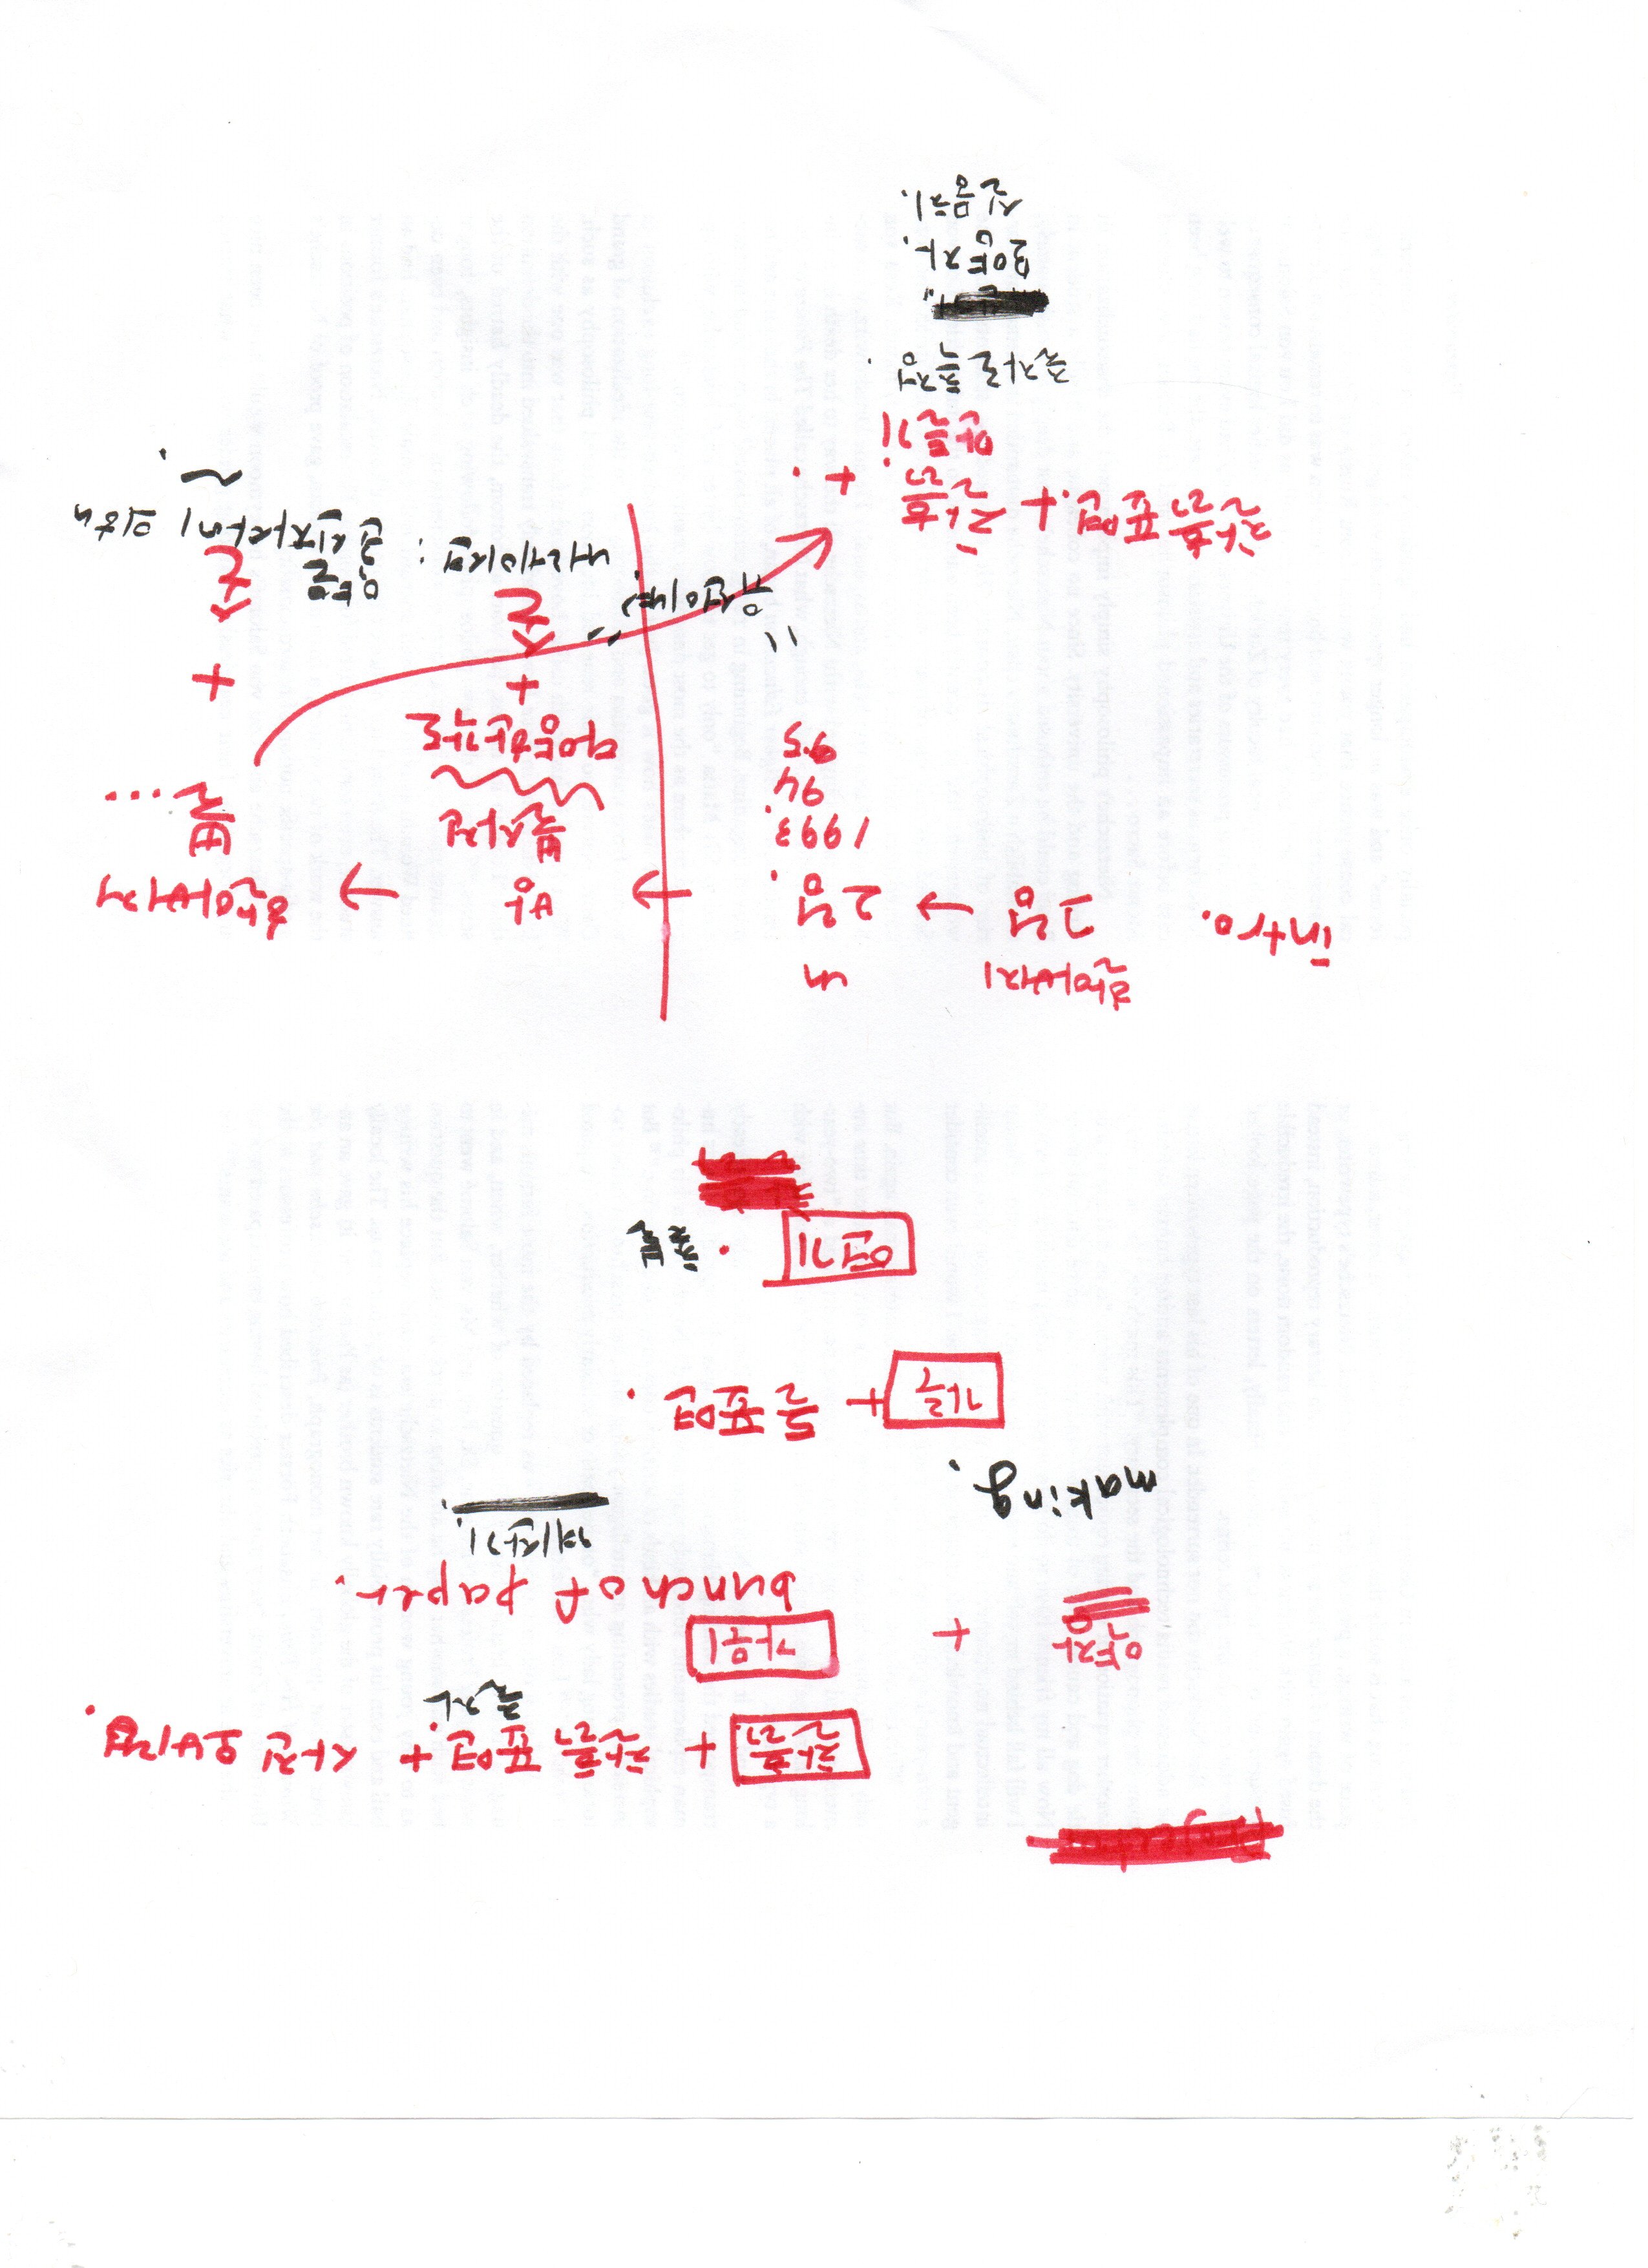 찰흙 + 찰흙 표면. + 사진 오버랩.
줄자
약장 + 가위
bunch of paper.
계산기.
making.
가루 + 돌 표면.
연기 · 촛불
intro. 할아버지 그림 → 내 그림. → 방 → 할아버지
1993.
94
95
뿔사진
뿔...
다양한각도
+
손
+
손
"유선이냐?"
내레이션: 약은 곤신자사에 의해 ~.
찰흙표면. + 찰흙. + .
만들기
줄자로 측정.
모양자.
실뭉치.